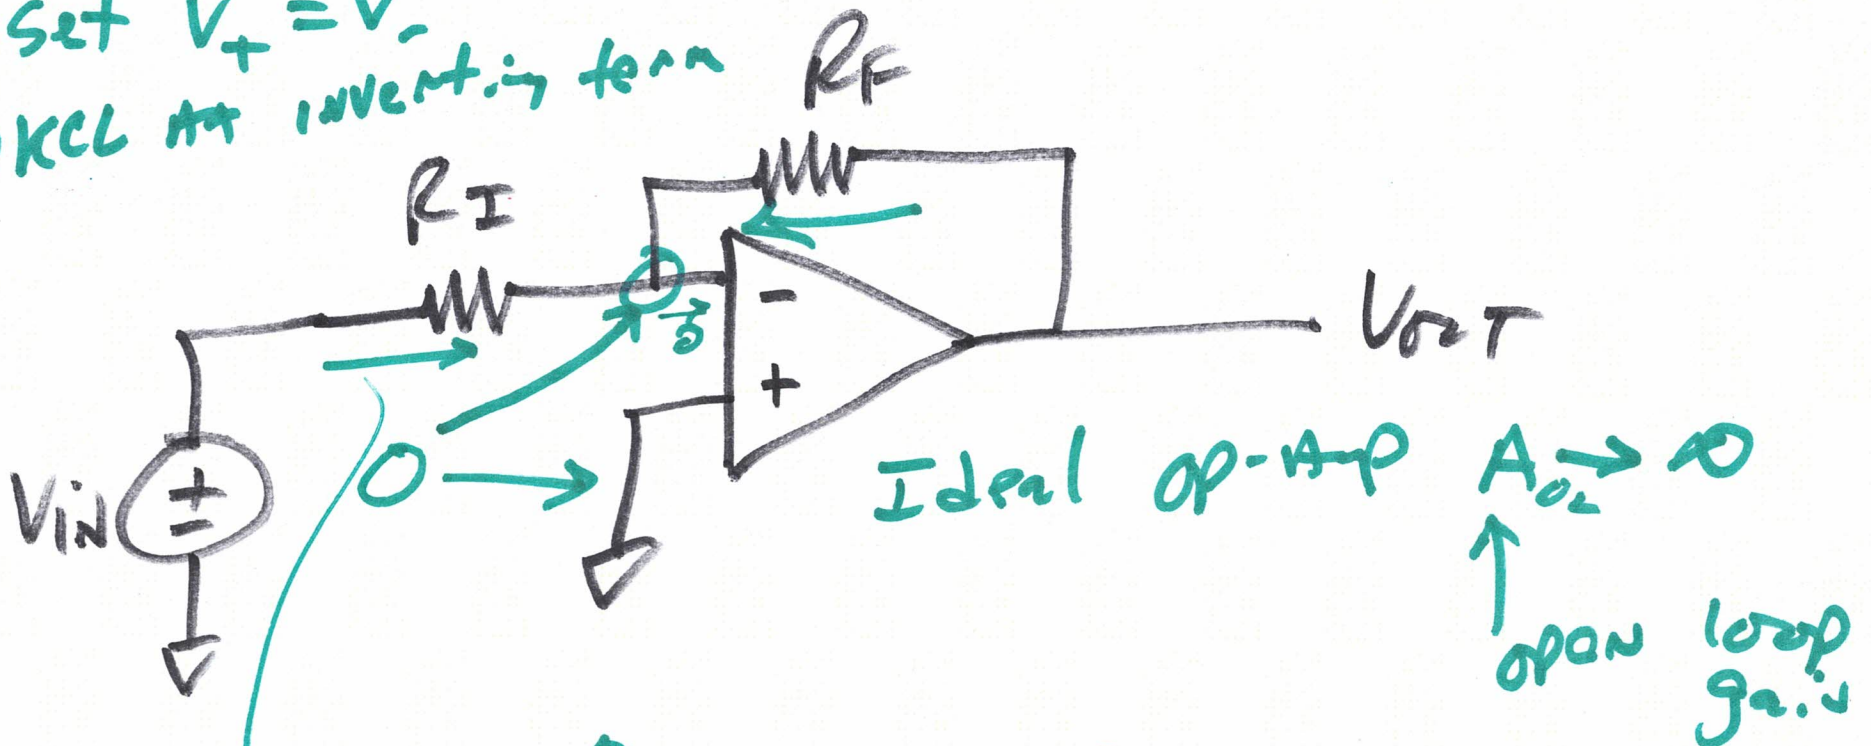 Set V+ = V-
KCL At inverting term
RF
RI
-
+
→0
VOUT
VIN
+
-
0
Ideal op-Amp AOL → ∞
open loop
gain